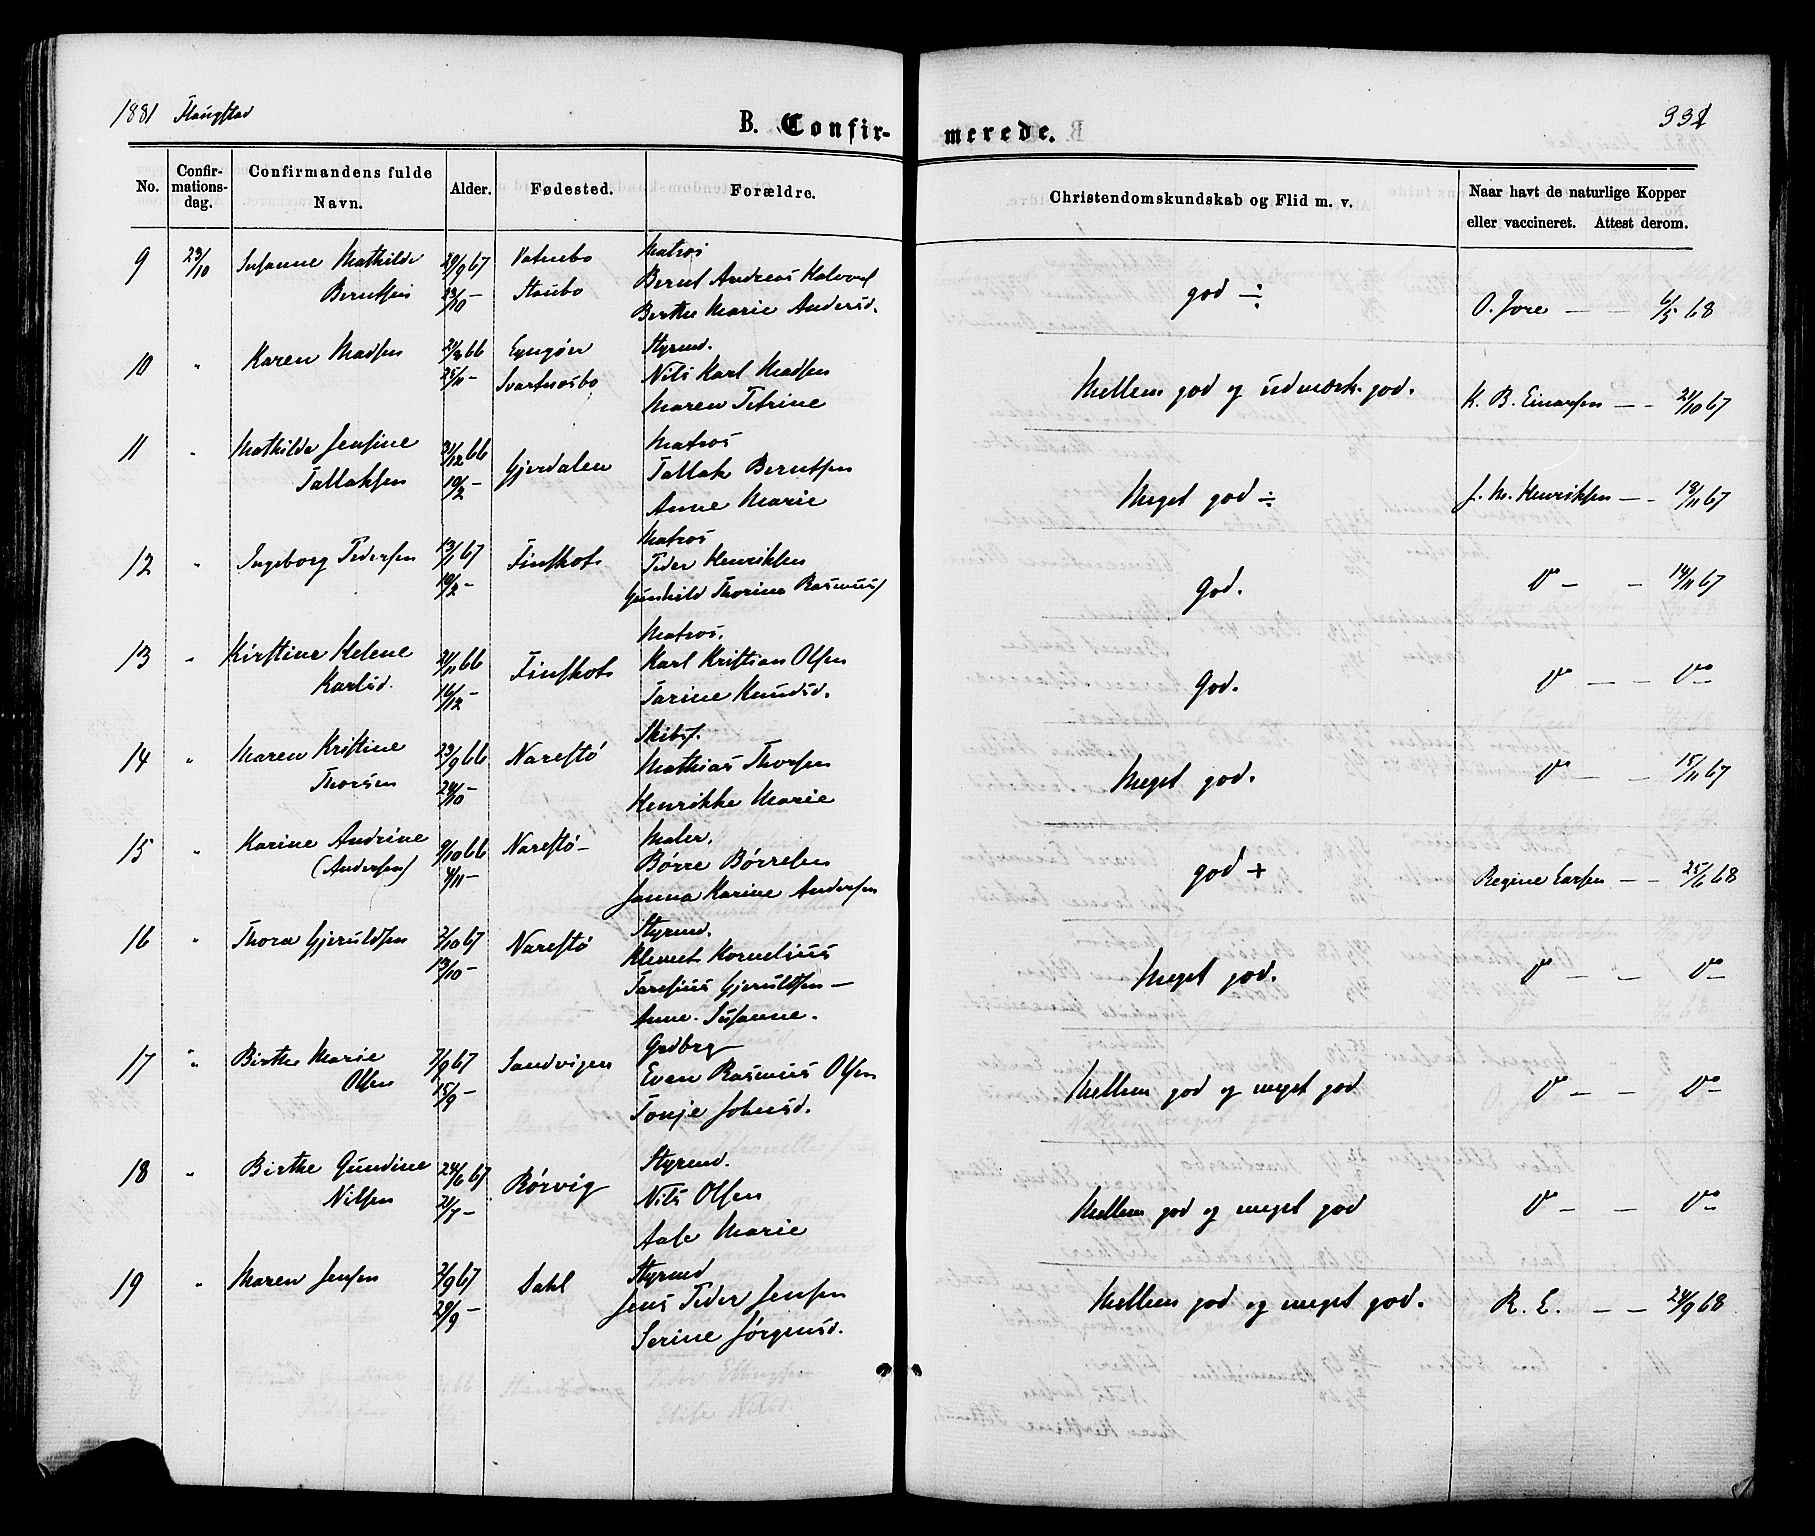 1881 Flangstad
B. Confir-
merede.
332
No.
Confir-
mations-
dag.
Confirmandens fulde
Navn.
Alder.
Fødested.
Forældre.
Christendomskundskab og Flid m. v.
Naar havt de naturlige Kopper
eller vaccineret. Attest derom.
9 23/10 Susanne Mathilde 20/9 67 Vatnebo Matros
Berntsen 23/10 — Staubo Bernt Andreas Halvors
Berthe Marie Andersd.
god ÷ O. Jore — — 6/5 68
10 " Karen Madsen 66 Eyngøn Styrmd.
25/11 — Svartnæsbo Nils Karl Madsen
Maren Petrine
Mellem god og udmærk. god. K. B. Einarsen — — 21/10 67
11 " Mathilde Jensine 31/12 66 Gjerdalen Matros
Tallaksen 10/2 — Tallak Berntsen
Anne Marie
Meget god ÷ J. M. Henriksen — — 18/11 67
12 " Ingeborg Pedersen 13/1 67 Finskot Matros
10/2 — Peder Henriksen
Gunhild Thorine Rasmus
God. Do — — 14/11 67
13 " Kirstine Helene 21/11 66 Finskot Matros.
Karlsd. 16/12 — Karl Kristian Olsen
Tarine Knudsd.
God. Do — — Do
14 " Maren Kristine 23/9 66 Narestø Skibsf.
Thorsen 24/10 — Mathias Thorsen
Henrikke Marie
Meget god. Do — — 15/11 67
15 " Karine Andrine 9/10 66 Narestø — Maler.
(Andersen) 4/11 — Børre Børresen
Janna Karine Andersen
god + Regine Larsen — — 25/6 68
16 " Thora Gjeruldsen 2/10 67 Narestø Styrmd.
13/10 — Klemet Kornelius
Taresius Gjeruldsen —
Anne Susanne.
Meget god. Do — — Do
17 " Birthe Marie 7/9 67 Sandvigen Grdbrg
Olsen 15/9 — Even Rasmus Olsen
Tonje Johnsd.
Mellem god og meget god Do — — Do
18 " Birthe Gundine 24/6 67 Rørvig Styrmd.
Nilsen 21/7 — Nils Olsen
Aase Marie
Mellem god og meget god Do — — Do
19 " Maren Jensen 2/9 67 Dahl Styrmd
29/9 — Jens Peder Jensen
Serine Jørgensd.
Mellem god og meget god. R. L. — — 24/9 68